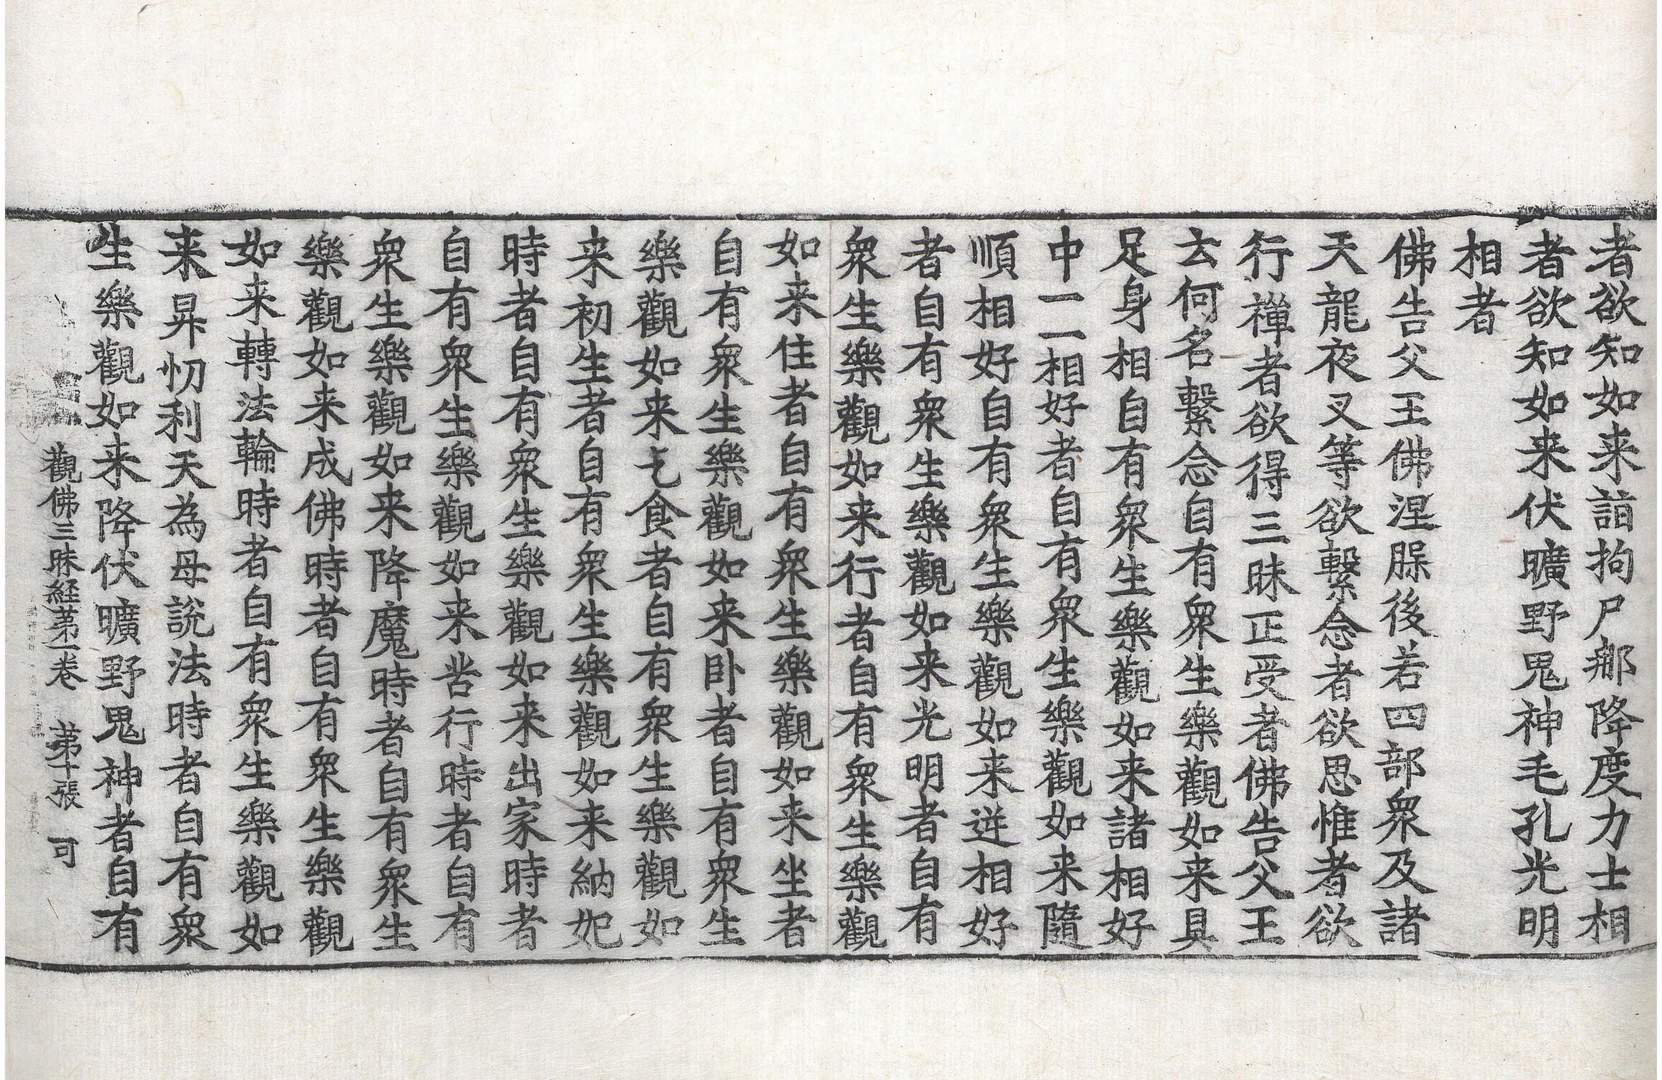 者欲知如来詣拘尸郍降度力士相
者欲知如来伏曠野鬼神毛孔光明
相者
佛告父王佛涅槃後若四部衆及諸
天龍夜叉等欲繫念者欲思惟者欲
行禪者欲得三昧正受者佛告父王
云何名繫念自有衆生樂觀如来具
足身相自有衆生樂觀如来諸相好
中一一相好者自有衆生樂觀如来隨
順相好自有衆生樂觀如来逆相好
者自有衆生樂觀如来光明者自有
衆生樂觀如来行者自有衆生樂觀
如来住者自有衆生樂觀如来坐者
自有衆生樂觀如来卧者自有衆生
樂觀如来乞食者自有衆生樂觀如
来初生者自有衆生樂觀如来納妃
時者自有衆生樂觀如来出家時者
自有衆生樂觀如来苦行時者自有
衆生樂觀如来降魔時者自有衆生
樂觀如来成佛時者自有衆生樂觀
如来轉法輪時者自有衆生樂觀如
来昇忉利天為母說法時者自有衆
生樂觀如来降伏曠野鬼神者自有
觀佛三昧経第一卷 第十張 可